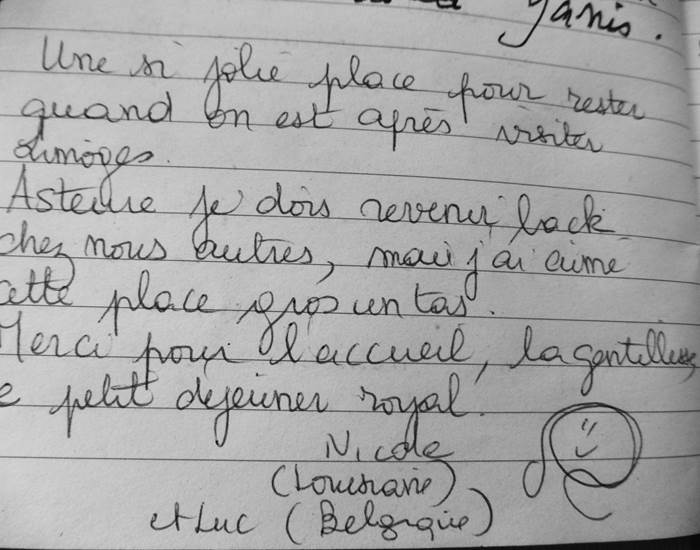 Yanis.
Une si jolie place pour rester
quand on est après visiter
Limoges.
Asteure je dois revenir back
chez nous autres, mais j'ai aimé
cette place gros un tas.
Merci pour l'accueil, la gentillesse,
e petit dejeuner royal.
Nicole
(Louisiane)
et Luc (Belgique)